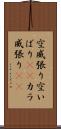 空威張り空い
ばり カラ
威張り